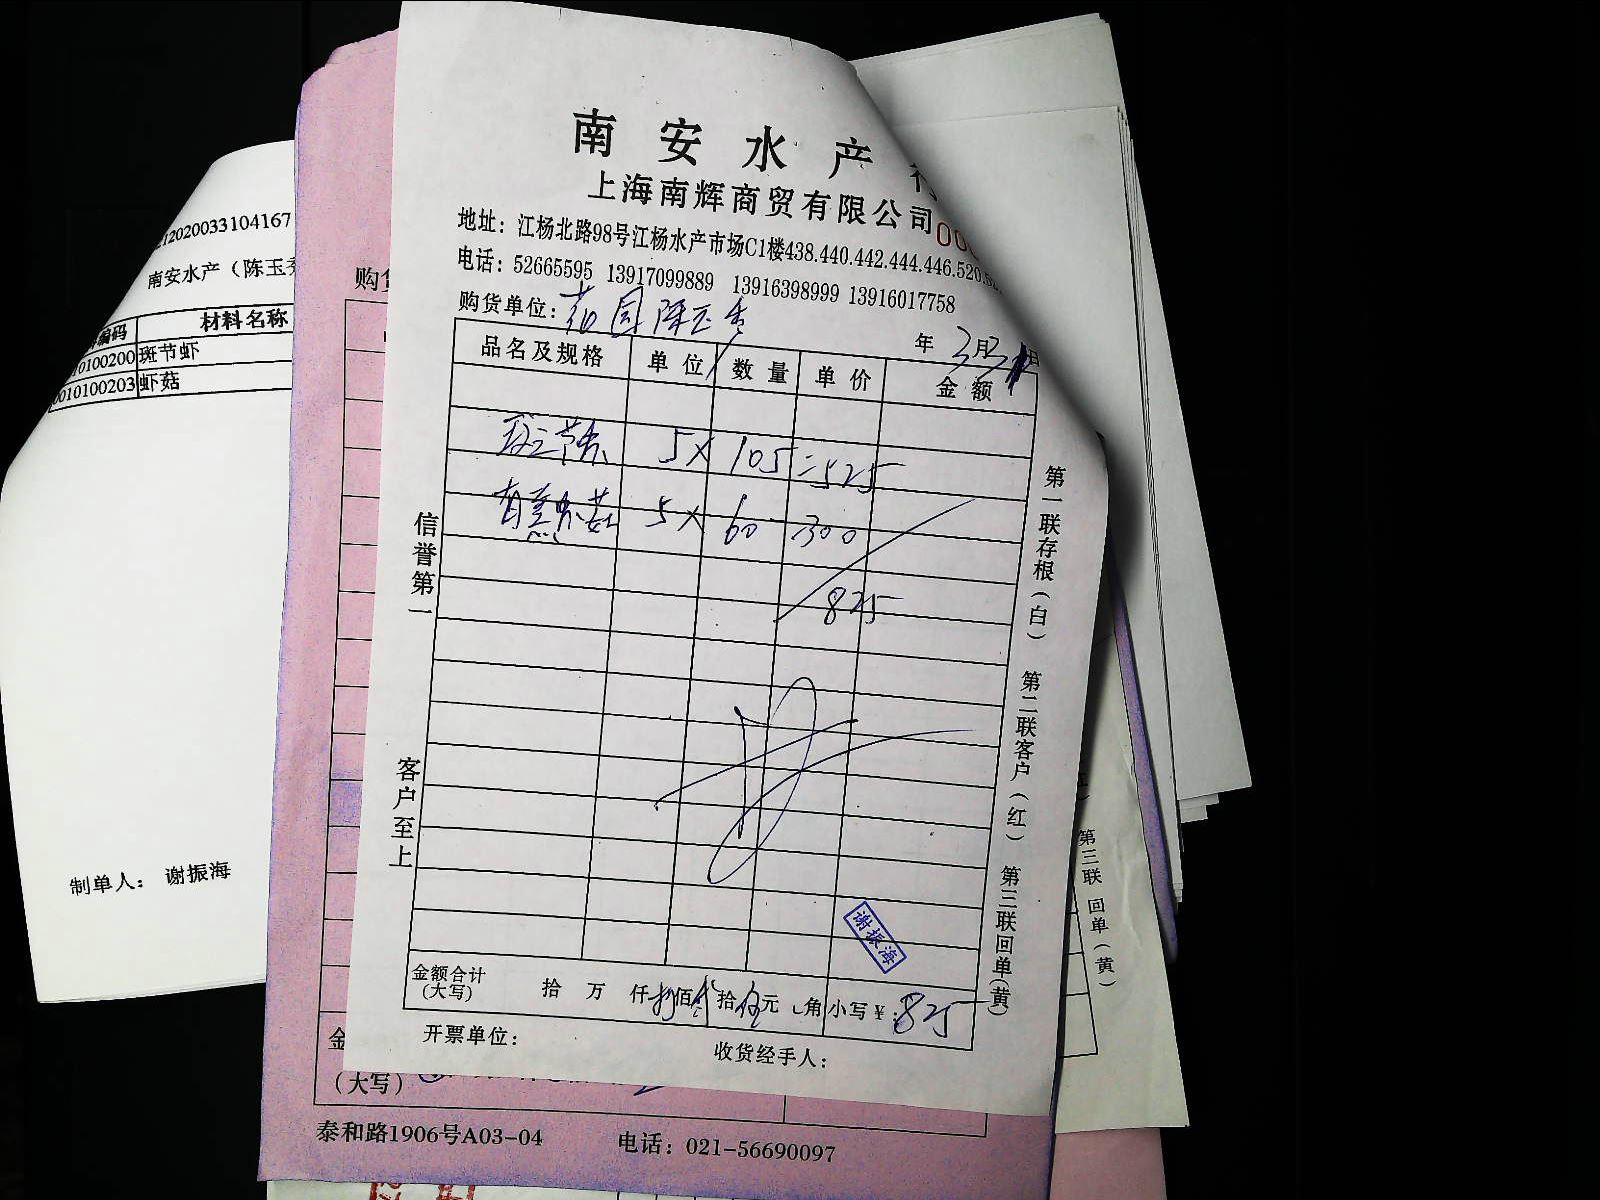 南安水产
上海南辉商贸有限公司
地址：江杨北路98号江杨水产市场C1楼438.440.442.444.446.520.5
电话：52665595 13917099889 13916398999 13916017758
购货单位：菇园陈玉秀
年 3月31日
品名及规格 单位 数量 单价 金额
斑节虾 5× 105=525
虾菇 5× 60 300
825
信誉第一
客户至上
第一联存根（白） 第二联客户（红） 第三联回单（黄）
谢振海
金额合计 拾 万 仟 捌佰贰拾伍元 角 小写￥：825
（大写）
开票单位：
收货经手人：
12020033104167
南安水产（陈玉秀
编码 材料名称
0100200 斑节虾
0010100203 虾菇
制单人： 谢振海
购货
金
（大写）
泰和路1906号A03-04 电话：021-56690097
第三联 回单（黄）